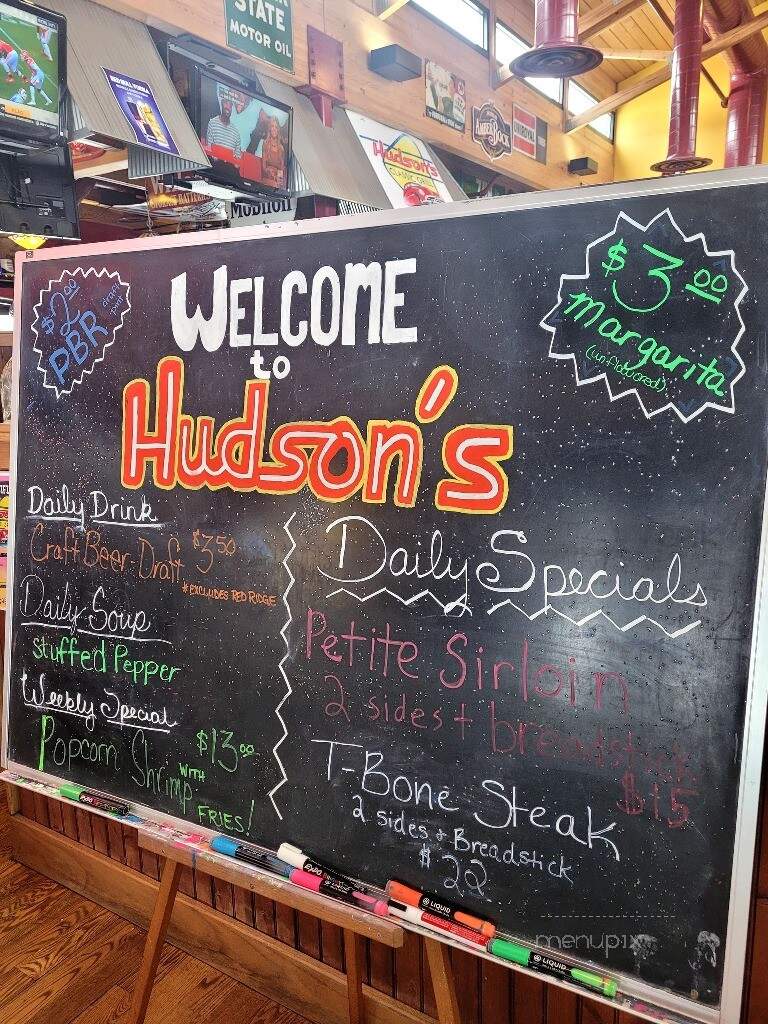 STATE
MOTOR OIL
Hudson's
CLASSIC GRILL
AMBERBOCK
$2.00
PBR
draft
pint
WELCOME
to
Hudson's
$3.00
margarita
(unflavored)
Daily Drink
Craft Beer-Draft $3.50
*EXCLUDES RED RIDGE
Daily Soup
Stuffed Pepper
Weekly Special
Popcorn Shrimp $13.00
WITH
FRIES!
Daily Specials
Petite Sirloin
2 sides + breadstick
$15
T-Bone Steak
2 sides + Breadstick
$22
EXPO
LIQUID
LIQUID
menupix